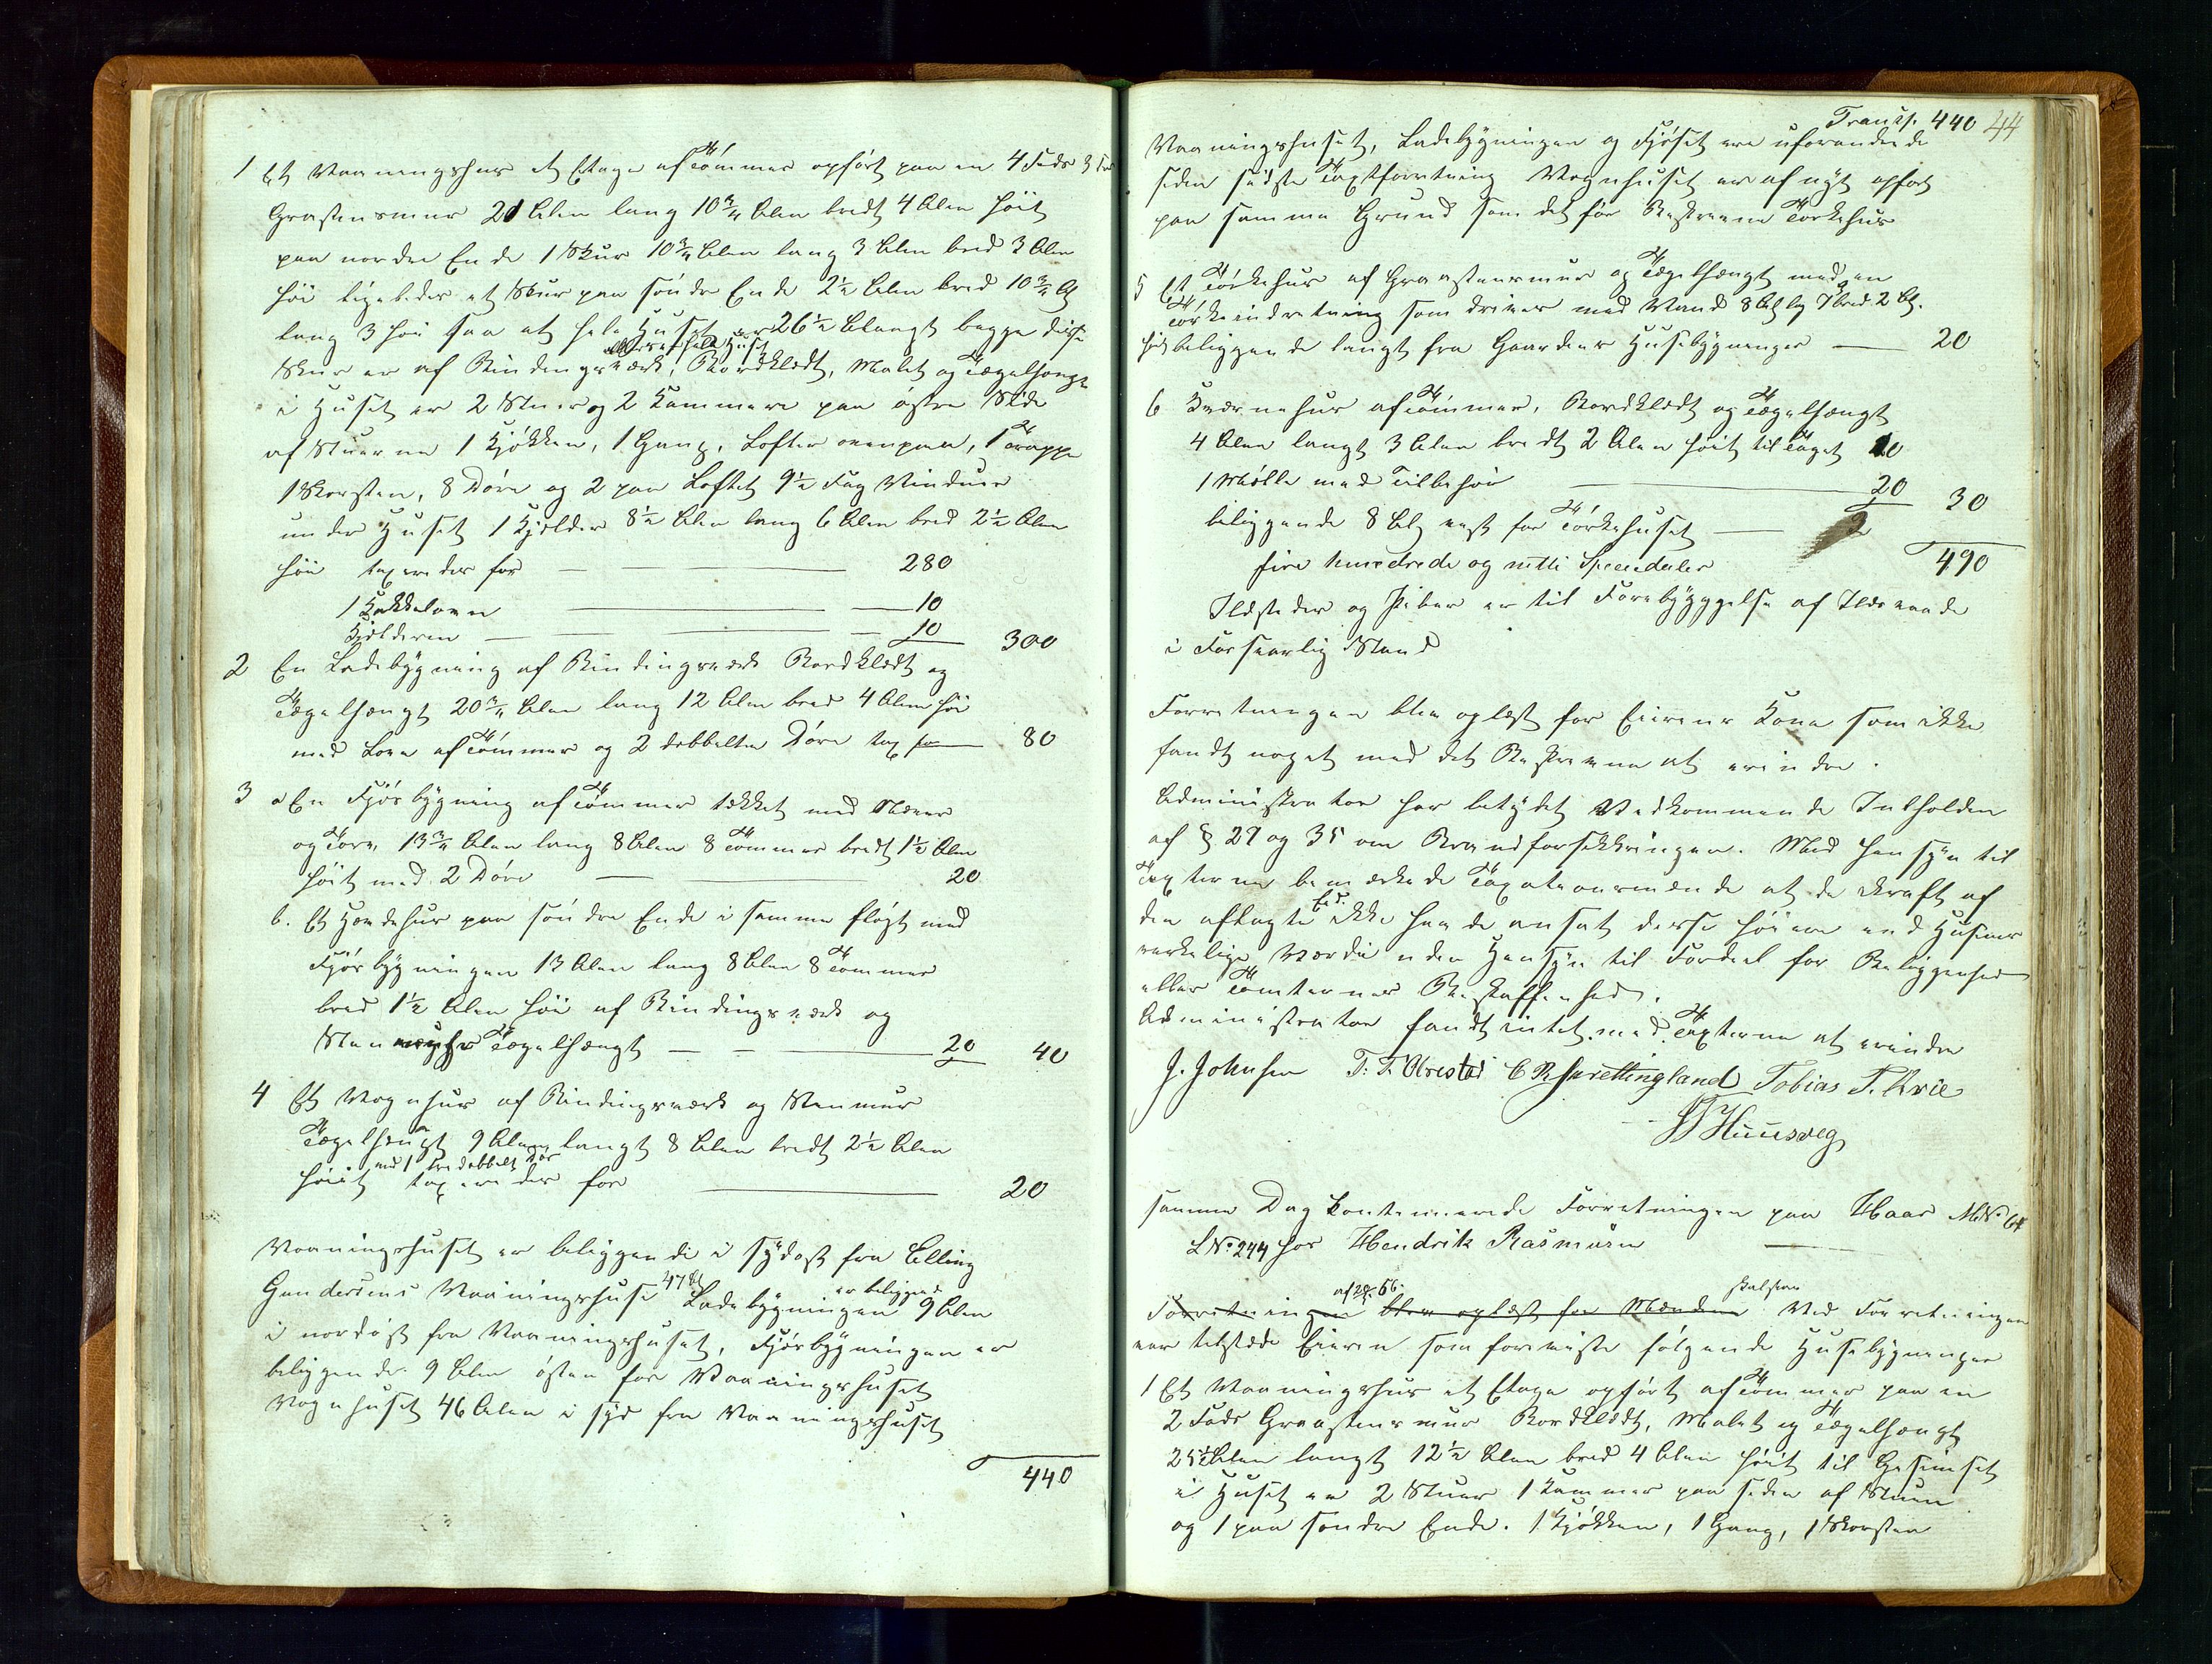 1 Et Vaaningshus et Etage af Tömmer opfört paa en 4 Fods 3
Graastensmur 21 Alen lang 10 3/4 Alen bredt 4 Alen höit
paa nordre Ende 1 Skur 10 3/4 Alen lang 3 Alen bred 3 Alen
höi ligeledes et Skur paa söndre Ende 2 1/2 Alen bred 10 3/4 Al
lang 3 höi saa at hele Huset er 26 1/2 Al langt begge disse
Skur er af Bindingsværk, Bordklædt, Malet og Tægelhængt
i Huset er 2 Stuer og 2 Kammere paa östre Side
af Stuerne 1 Kjökken, 1 Gang, Lofter ovenpaa, 1 Trappe
1 Skorsten, 8 Döre og 2 paa Loftet 9 1/2 Fag Vinduer
under Huset 1 Kjelder 8 1/2 Alen lang 6 Alen bred 2 1/2 Alen
höi taxeredes for 280
1 Kakkelovn 10
Kjelderen 10 300
2 En Ladebygning af Bindingsværk Bordklædt og
Tægelhængt 20 3/4 Alen lang 12 Alen bred 4 Alen höi
med Love af Tömmer og 2 dobbelte Döre tax for 80
3 a En Fjösbygning af Tömmer tækket med Næver
og Torv, 13 3/4 Alen lang 8 Alen 8 Tommer bredt 1 1/2 Alen
höit med 2 Döre 20
b. Et Hördehus paa söndre Ende i samme flögt med
Fjösbygningen 13 Alen lang 8 Alen 8 Tommer
bred 1 1/2 Alen höi af Bindingsværk og
Stenmuur Tægelhængt 20 40
4 Et Vognhus af Bindingsværk og Stenmur
Tægelhængt 9 Alen langt 8 Alen bredt 2 1/2 Alen
med 1 dobbelt Dör
höiit taxeredes for 20
Vaaningshuset er beliggende i sydost fra Elling
Gundersens Vaaningshuse 47 Al Ladebygningen er beliggend 9 Alen
i nordöst fra Vaaningshuset, Fjösbygningen er
beliggende 9 Alen östen for Vaaningshuset
Vognhuset 46 Alen i syd fra Vaaningshuset
440
Transp. 440 44
Vaaningshuset, Ladebygningen og Fjöset ere uforandrede
siden sidste Taxtforretning Vognhuset er af nyt opfört
paa samme Grund som det för Beskrevne Törkehus
5 Et Törkehus af Graastensmur og Tægelhængt med en
Törkeindretning som drives med Vand 8 Al lg 7 bred 2 Al.
höi beliggende langt fra Gaardens Husebygninger 20
6 Kværnehus af Tömmer, Bordklædt og Tægelhængt
4 Alen langt 3 Alen bredt 2 Alen höit til Taget 10
1 Mölle med Tilbehör 20 30
beliggende 8 Al vest for Törkehuset
fire hundrede og nitti Speciedaler 490
Ildsteder og Piber er til Forebyggelse af Ildsvaade
i Forsvarlig Stand
Forretningen blev oplæst for Eierens Kone som ikke
fandt noget med det Beskrevne at erindre.
Administrator har betydet Vedkommende Indholden
af § 27 og 35 om Brandforsikkringen. Med Hensyn til
Taxterne bemærkede Taxationsmænde at de ikraft af
den aflagte Ed ikke havde ansat disse höiere end Husenes
verkelige Værdi uden Hensyn til Fordeel for Beliggenhed
eller Tomternes Beskaffenhed.
Administrator fandt intet med Taxterne at erindre
J. Johnsen T. T. Olrestad C R Sprettingland Tobias T. Kvie
Huusveg
samme Dag kontinuerede Forretningen paa Haar M No 64
L No 244 hos Hendrik Rasmusen
Forretningen blev oplæst for Mændene Ved Forretningen
var tilstæde Eieren som foreviste fölgende Husebygninger
1 Et Vaaningshus et Etage opfört af Tömmer paa en
2 Fods Graastensmur Bordklædt, Malet og Tægelhængt
25 1/2 Alen langt 12 1/2 Alen bred 4 Alen höit til Gesimset
i Huset er 2 Stuer 1 Kammer paa siden af Stuen
og 1 paa söndre Ende. 1 Kjökken, 1 Gang, 1 Skorsten